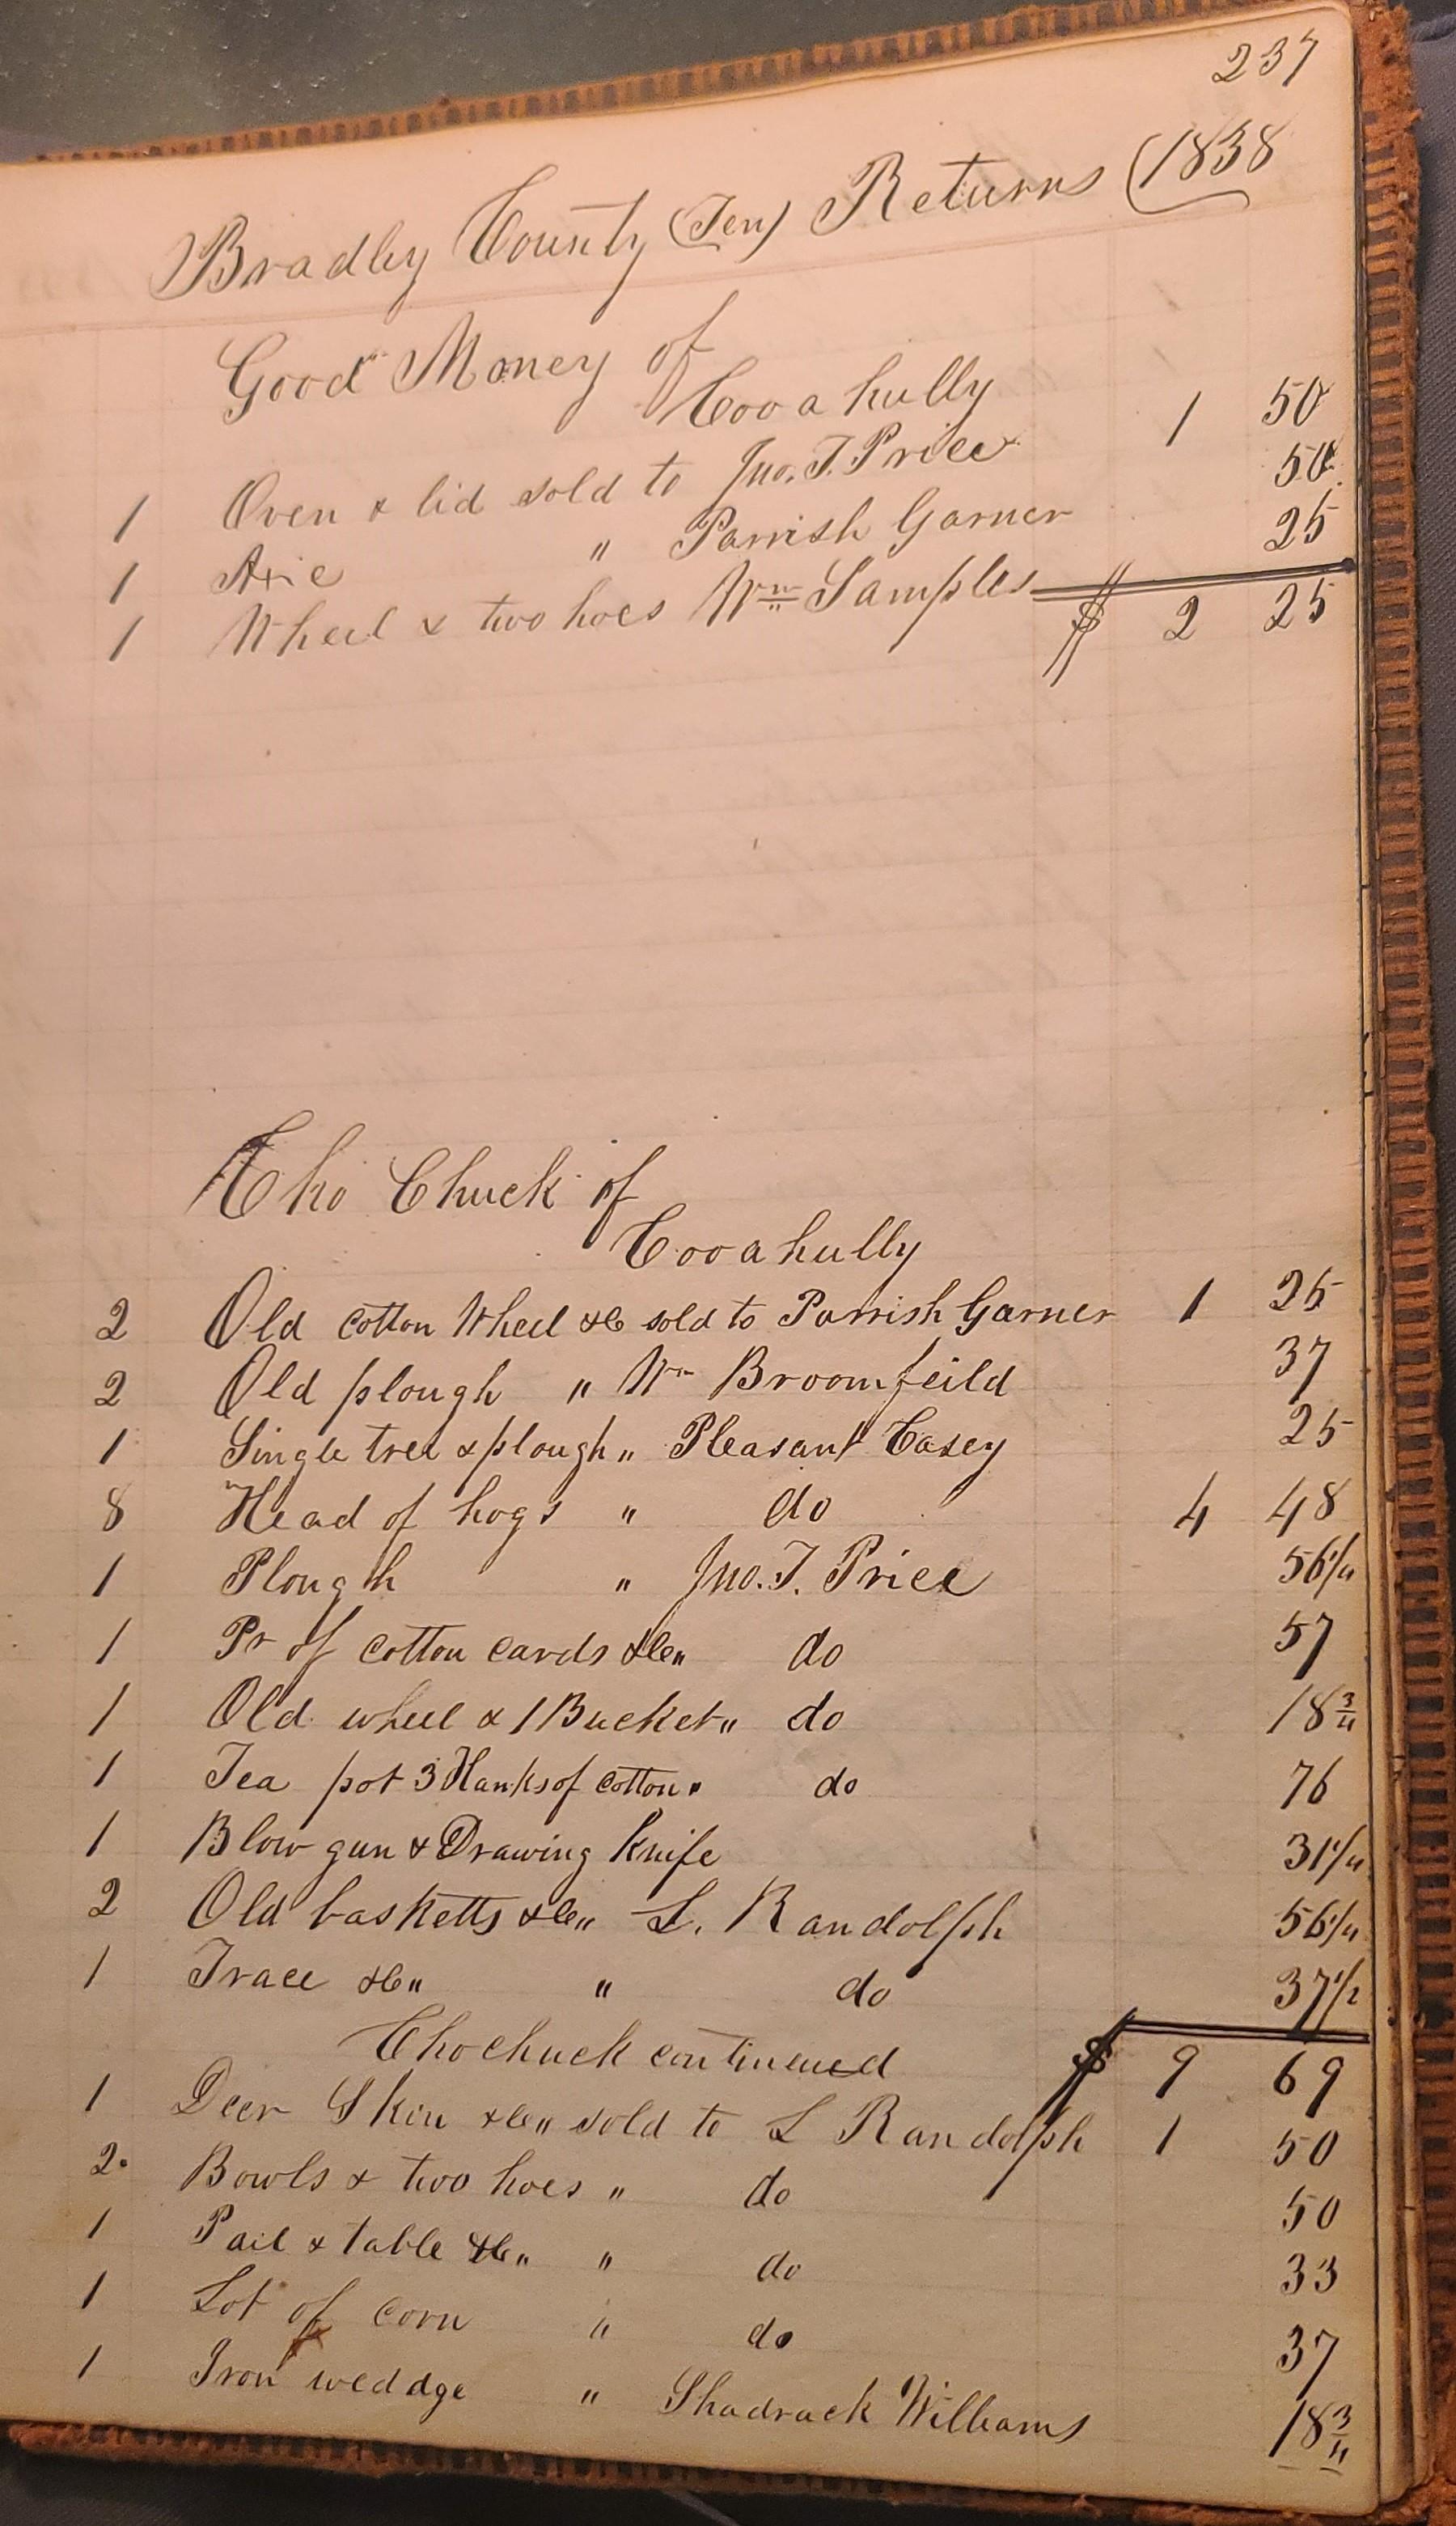 237
Bradley County (Ten) Returns (1838
Good Money of
Cooahully
1 Oven & lid sold to Jno. T. Price 1 50
1 Axe " Parrish Garner 50
1 Wheel & two hoes Wm Samples 25
$ 2 25
Cho Chuck of
Cooahully
2 Old cotton Wheel &c sold to Parrish Garner 1 25
2 Old plough " Wm Broomfeild 37
1 Single tree & plough " Pleasant Casey 25
8 Head of hogs " do 4 48
1 Plough " Jno. T. Price 56 1/4
1 Pr of cotton cards &c " do 57
1 Old wheel & 1 Bucket " do 18 3/4
1 Tea pot 3 Hanks of cotton " do 76
1 Blow gun & Drawing Knife 31 1/4
2 Old basketts &c " L. Randolph 56 1/4
1 Trace &c " " do 37 1/2
Chochuck continued $ 9 69
1 Deer Skin &c " sold to L Randolph 1 50
2. Bowls & two hoes " do 50
1 Pail & table &c " " do 33
1 Lot of corn " do 37
1 Iron weddge " Shadrack Williams 18 3/4